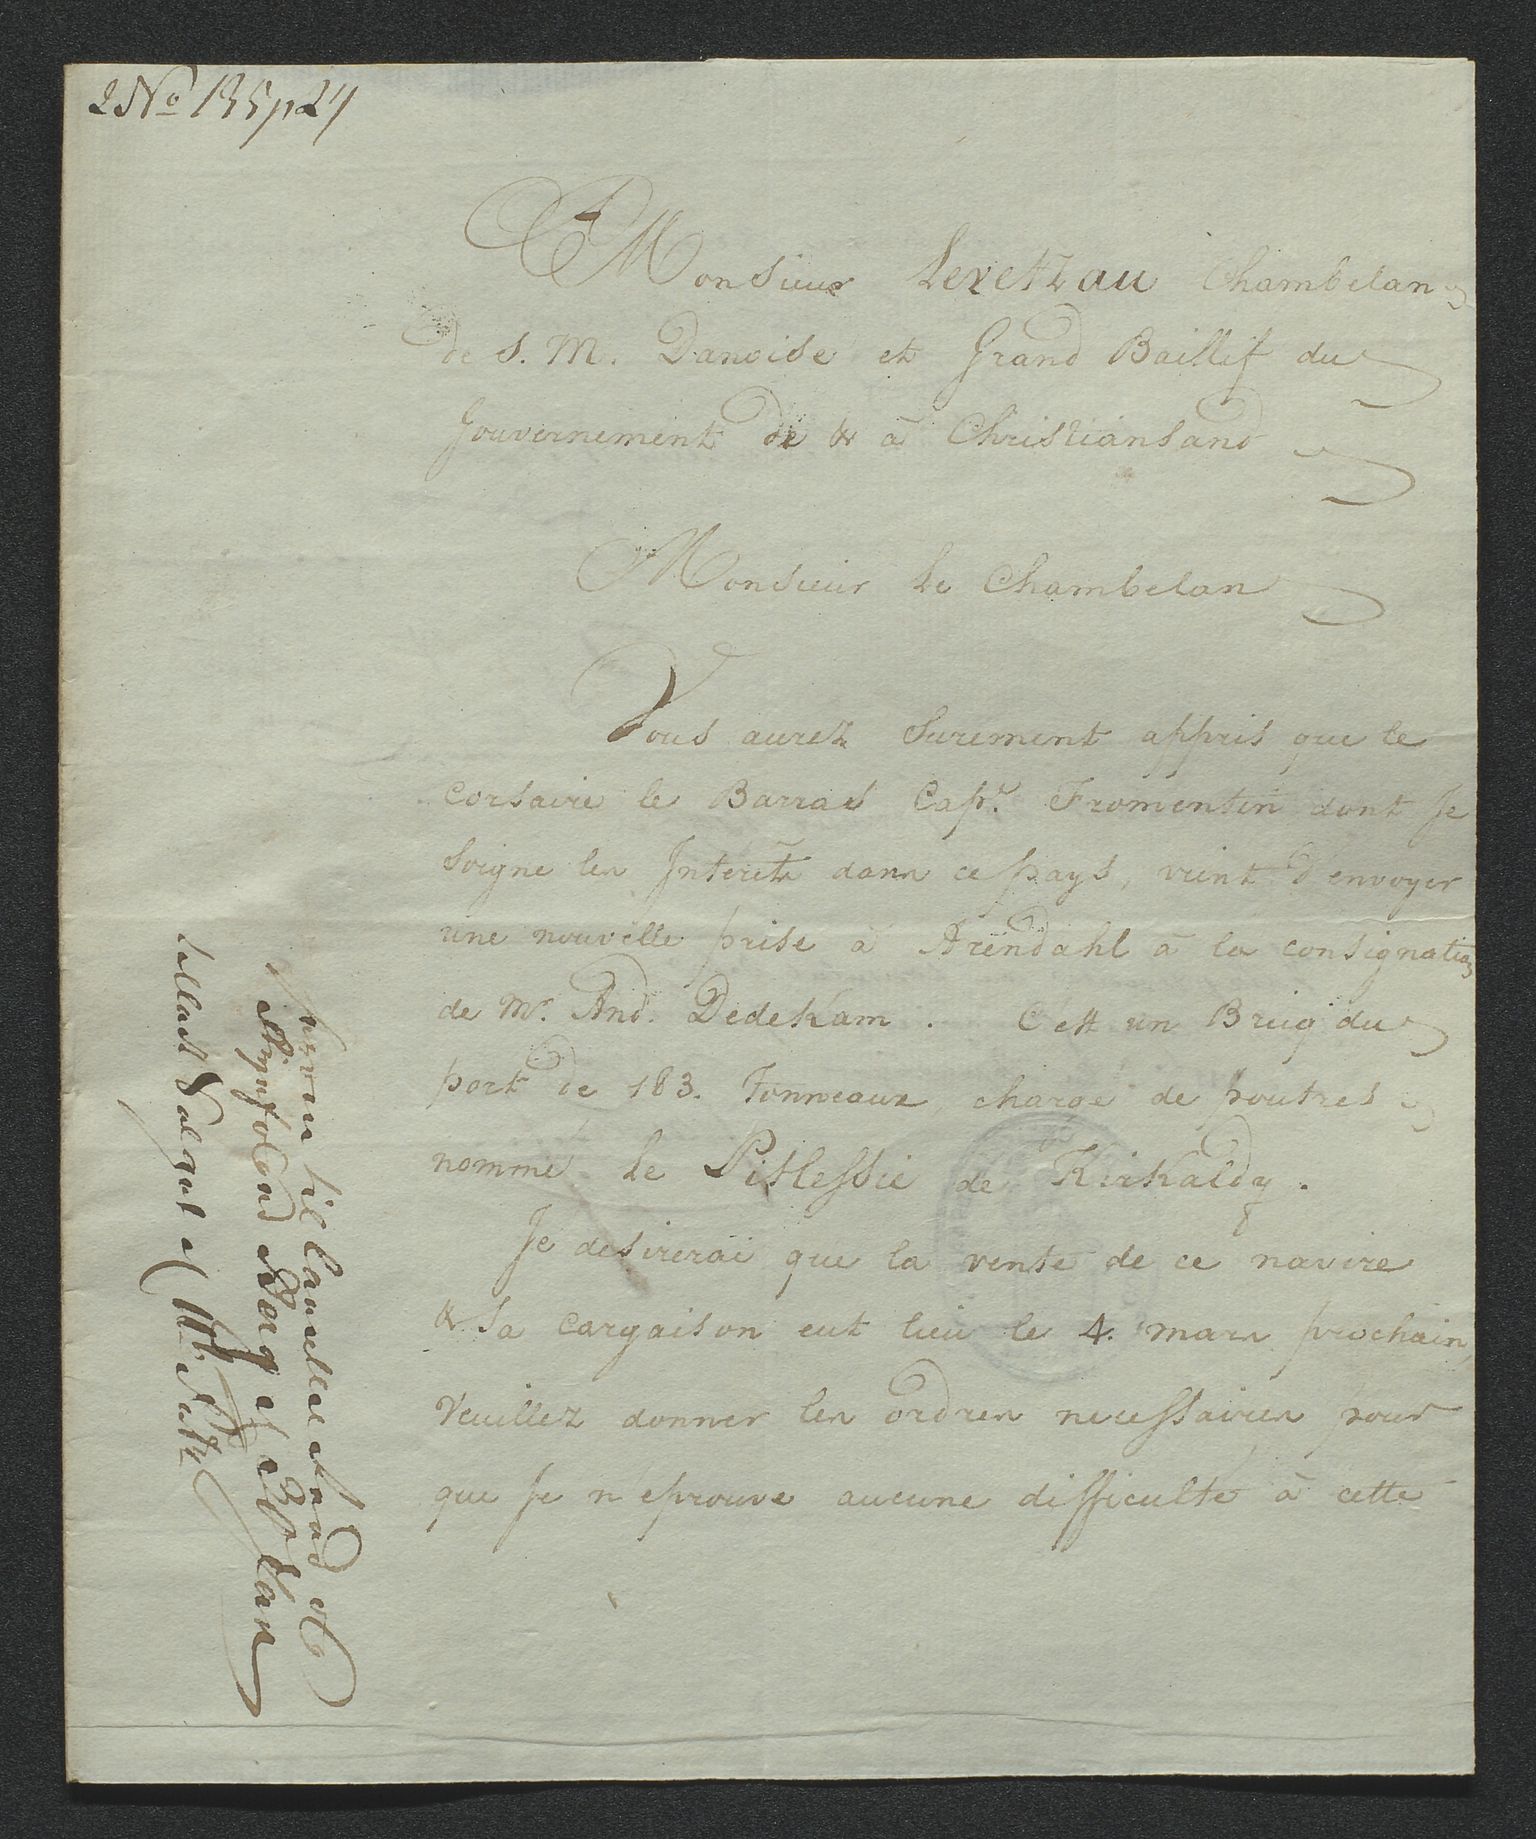 2 No 135/127
A Monsieur Levetzau Chambelan
de S. M. Danoise et Grand Baillif du
Gouvernement de & à Christiansand
Monsieur le Chambelan
Vous aurez Surement appris que le
Corsaire le Barras Cap.e Fromentin dont Je
Soigne les Interêts dans ce pays, vient d'envoyer
une nouvelle prise à Arendahl à la consignation
de Mr. And. Dedekam. C'est un Brig du
port de 183. Tonneaux, chargé de poutres
nommé le Pitlessie de Kirkaldy.
Je desirerai que la vente de ce navire
& Sa Cargaison eut lieu le 4. mars prochain,
Veuillez donner les ordres necessaires pour
que Je n'eprouve aucune difficulté à cette